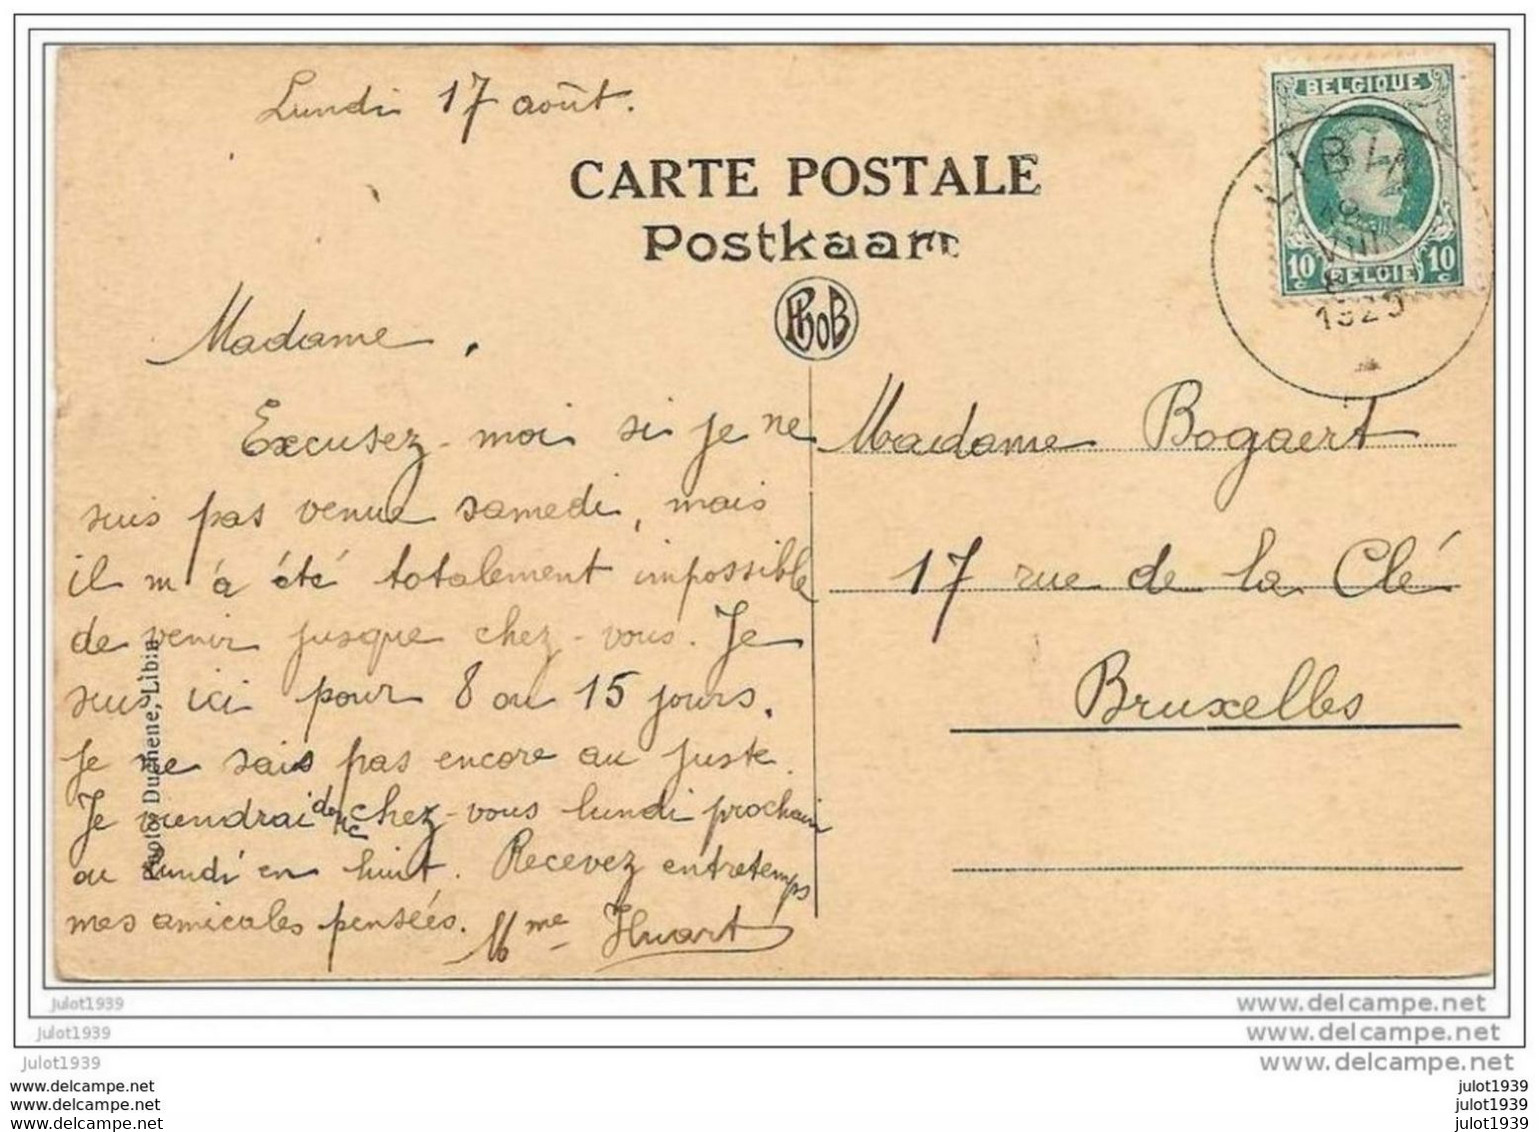 Lundi 17 août.
CARTE POSTALE
Postkaart
BELGIQUE
LIBIN
VIII
1925
10 c BELGIE 10 c
PhoB
Madame,
Excusez-moi si je ne
suis pas venue samedi, mais
il m'a été totalement impossible
de venir jusque chez-vous. Je
suis ici pour 8 ou 15 jours.
Je ne sais pas encore au juste.
Je viendrai donc chez-vous lundi prochain
ou lundi en huit. Recevez entretemps
mes amicales pensées. Mme Huart
Photos Duchene, Libin
Madame Bogaert
17 rue de la Clé
Bruxelles
julot1939
www.delcampe.net
julot1939
www.delcampe.net
julot1939
www.delcampe.net
www.delcampe.net
julot1939
www.delcampe.net
julot1939
www.delcampe.net
julot1939